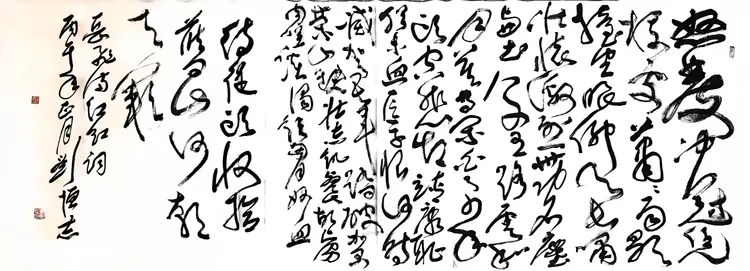 怒髮冲冠凭
栏处萧萧雨歇
抬望眼仰天长啸
壮怀激烈三十功名尘
与土八千里路云和
月莫等闲白了少年
头空悲切靖康耻
犹未雪臣子恨何时
灭驾长车踏破贺兰
山缺壮志饥餐胡虏
肉笑谈渴饮匈奴血
待从头收拾
旧山河朝
天阙
岳飞满江红词
丙午年正月刘恒志